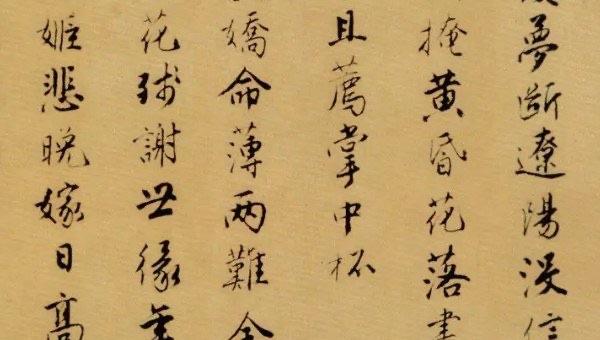 夢斷遼陽沒信
掩黄昏花落
且薦掌中杯
嬌命薄两難全
花殘謝世緣
姬悲晚嫁日高